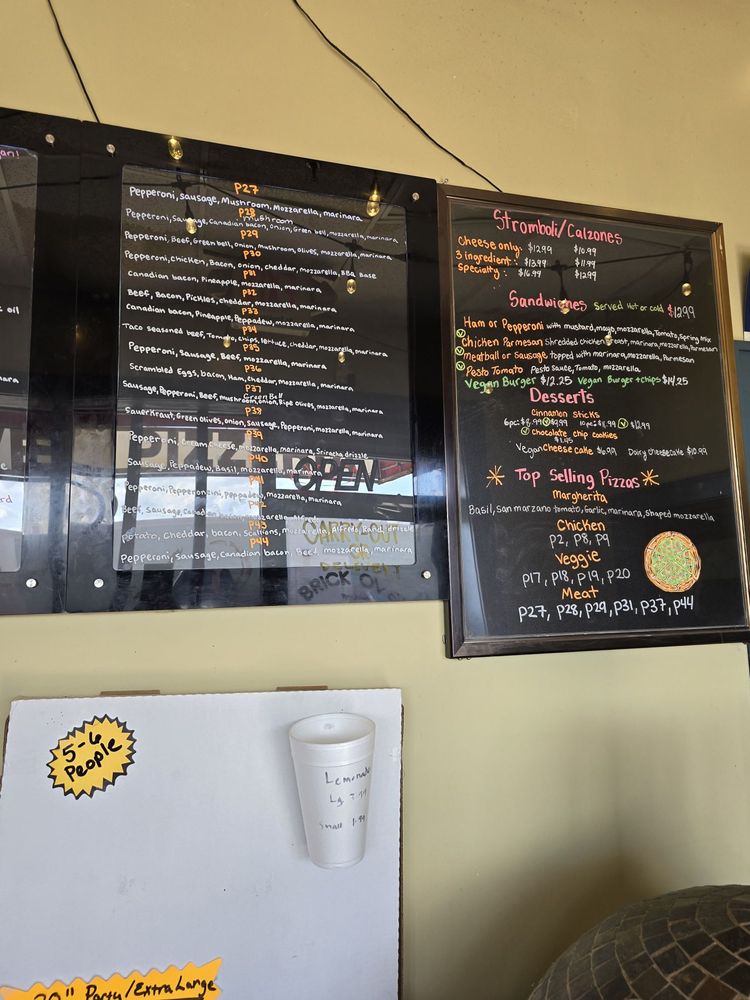 P27
Pepperoni, Sausage, Mushroom, Mozzarella, marinara
P28
mushroom
Pepperoni, Sausage, Canadian bacon, Onion, Green bell, mozzarella, marinara
P29
Pepperoni, Beef, Green bell, onion, mushroom, olives, mozzarella, marinara
P30
Pepperoni, Chicken, Bacon, onion, cheddar, mozzarella, BBQ Base
P31
Canadian bacon, Pineapple, mozzarella, marinara
P32
Beef, Bacon, Pickles, cheddar, mozzarella, marinara
P33
Canadian bacon, Pineapple, Peppadew, mozzarella, marinara
P34
Taco seasoned beef, Tomato, chips, lettuce, cheddar, mozzarella, marinara
P35
Pepperoni, Sausage, Beef, mozzarella, marinara
P36
Scrambled Eggs, bacon, Ham, cheddar, mozzarella, marinara
P37
Green Bell
Sausage, Pepperoni, Beef, mushroom, onion, Ripe Olives, mozzarella, marinara
P38
Sauerkraut, Green Olives, onion, Sausage, Pepperoni, mozzarella, marinara
P39
Pepperoni, Cream Cheese, mozzarella, marinara, Sriracha drizzle
P40
Sausage, Peppadew, Basil, mozzarella, marinara
P41
Pepperoni, Pepperoncini, Peppadew, mozzarella, marinara
P42
Beef, Sausage, Canadian bacon, mozzarella, Alfredo
P43
Potato, Cheddar, bacon, Scallions, mozzarella, Alfredo, Ranch drizzle
P44
Pepperoni, Sausage, Canadian bacon, Beef, mozzarella, marinara
OPEN
CARRY-OUT
OR
DELIVERY
BRICK
Stromboli/Calzones
Cheese only: $12.99 $10.99
3 ingredient: $13.99 $11.99
Specialty: $16.99 $12.99
Sandwiches Served Hot or cold $12.99
Ham or Pepperoni with mustard, mayo, mozzarella, Tomato, Spring Mix
Chicken Parmesan Shredded chicken breast, marinara, mozzarella, Parmesan
meatball or Sausage topped with marinara, mozzarella, Parmesan
Pesto Tomato Pesto sauce, Tomato, mozzarella
Vegan Burger $12.25 Vegan Burger + chips $14.25
Desserts
Cinnamon sticks
6pc: $8.99 $9.99 10pc: $11.99 $12.99
Chocolate chip cookies
$1.45
Vegan Cheesecake $6.99 Dairy Cheesecake $10.99
Top Selling Pizzas
Margherita
Basil, San marzano tomato, garlic, marinara, shaped mozzarella
Chicken
P2, P8, P9
Veggie
P17, P18, P19, P20
Meat
P27, P28, P29, P31, P37, P44
5-6
People
Lemonade
Lg
Small 1.99
20" Party/Extra Large